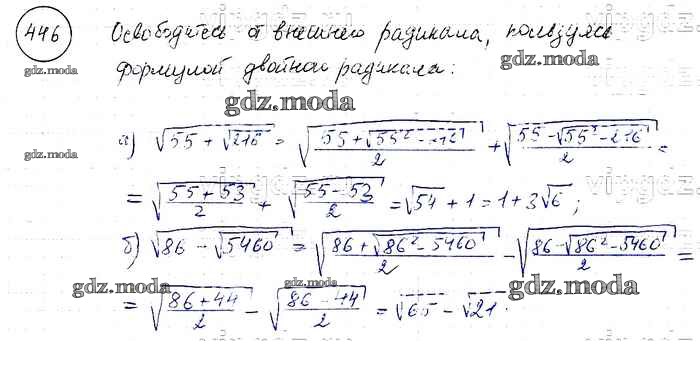 446 Освободитесь от внешнего радикала, пользуясь
формулой двойного радикала:
gdz.moda
а) √(55 + √216) = √((55 + √(55² - 216))/2) + √((55 - √(55² - 216))/2) =
= √((55 + 53)/2) + √((55 - 53)/2) = √54 + 1 = 1 + 3√6;
б) √(86 - √5460) = √((86 + √(86² - 5460))/2) - √((86 - √(86² - 5460))/2) =
gdz.moda
= √((86 + 44)/2) - √((86 - 44)/2) = √65 - √21.